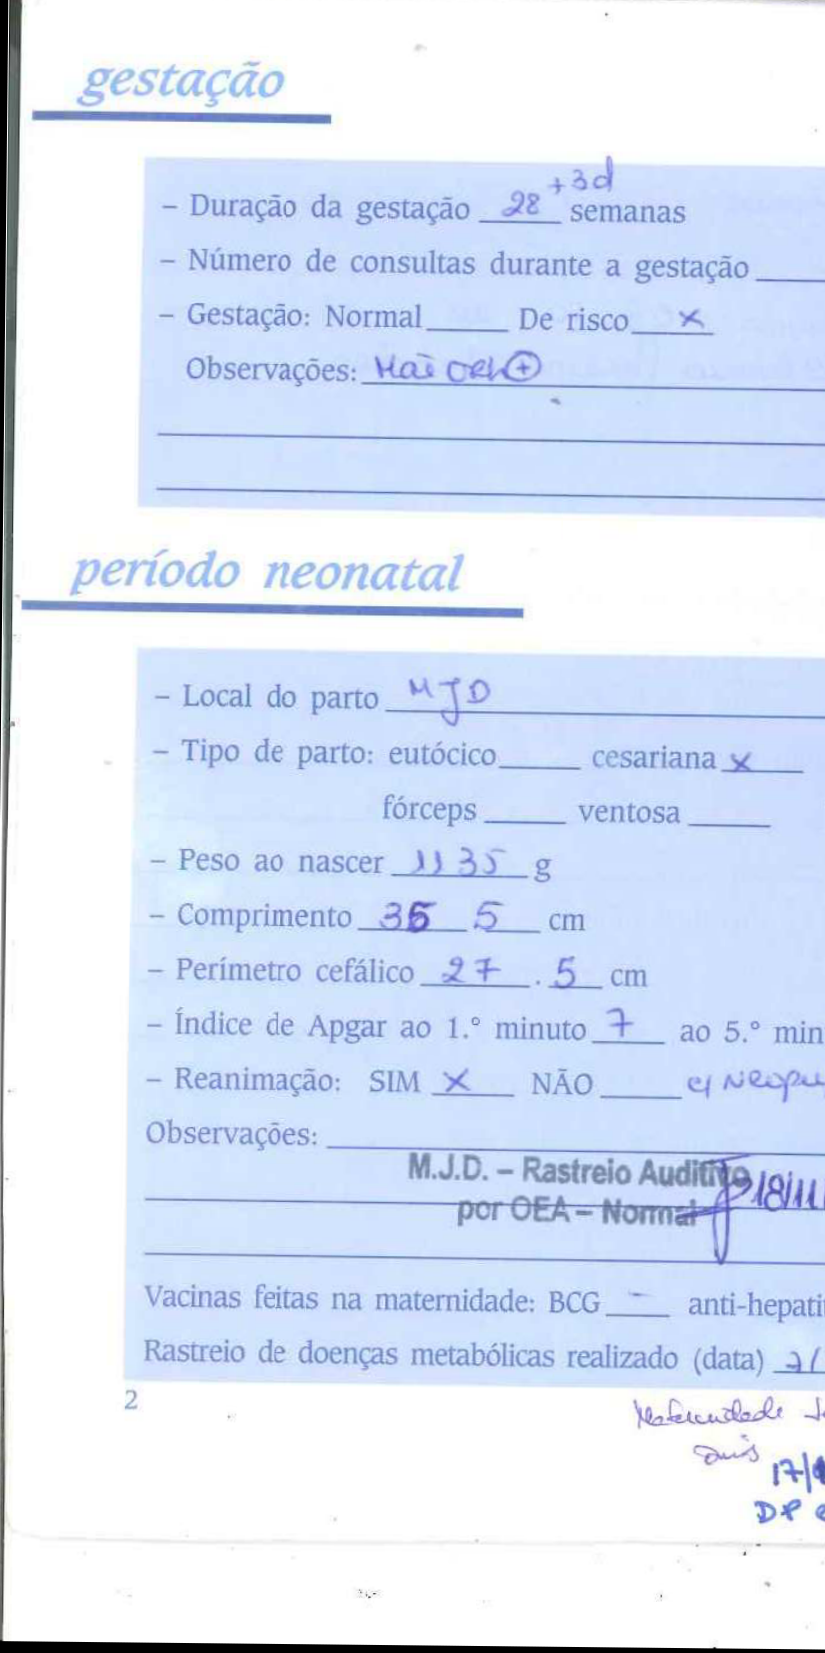 gestação
+3d
– Duração da gestação 28 semanas
– Número de consultas durante a gestação
– Gestação: Normal De risco x
Observações: Mãe ORh⊕
período neonatal
– Local do parto MJD
– Tipo de parto: eutócico cesariana x
fórceps ventosa
– Peso ao nascer 1135 g
– Comprimento 36 5 cm
– Perímetro cefálico 27 . 5 cm
– Índice de Apgar ao 1.º minuto 7 ao 5.º min
– Reanimação: SIM X NÃO c/ Neopu
Observações:
M.J.D. – Rastreio Auditivo 18/11
por OEA – Normal
Vacinas feitas na maternidade: BCG – anti-hepati
Rastreio de doenças metabólicas realizado (data)
2
Maternidade
17/
DP